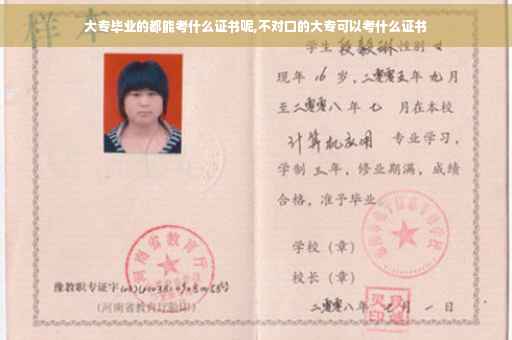 大专毕业的都能考什么证书呢,不对口的大专可以考什么证书
样本
学生 段毅琳 性别 女
现年 16 岁,二零零五年 九月
至二零零八年 七 月在本校
计算机应用 专业学习,
学制 三年,修业期满,成绩
合格,准予毕业
学校(章)
校长(章)
二零零八年 七月 一日
河南省教育厅
豫教职专证字
(河南省教育厅验印)